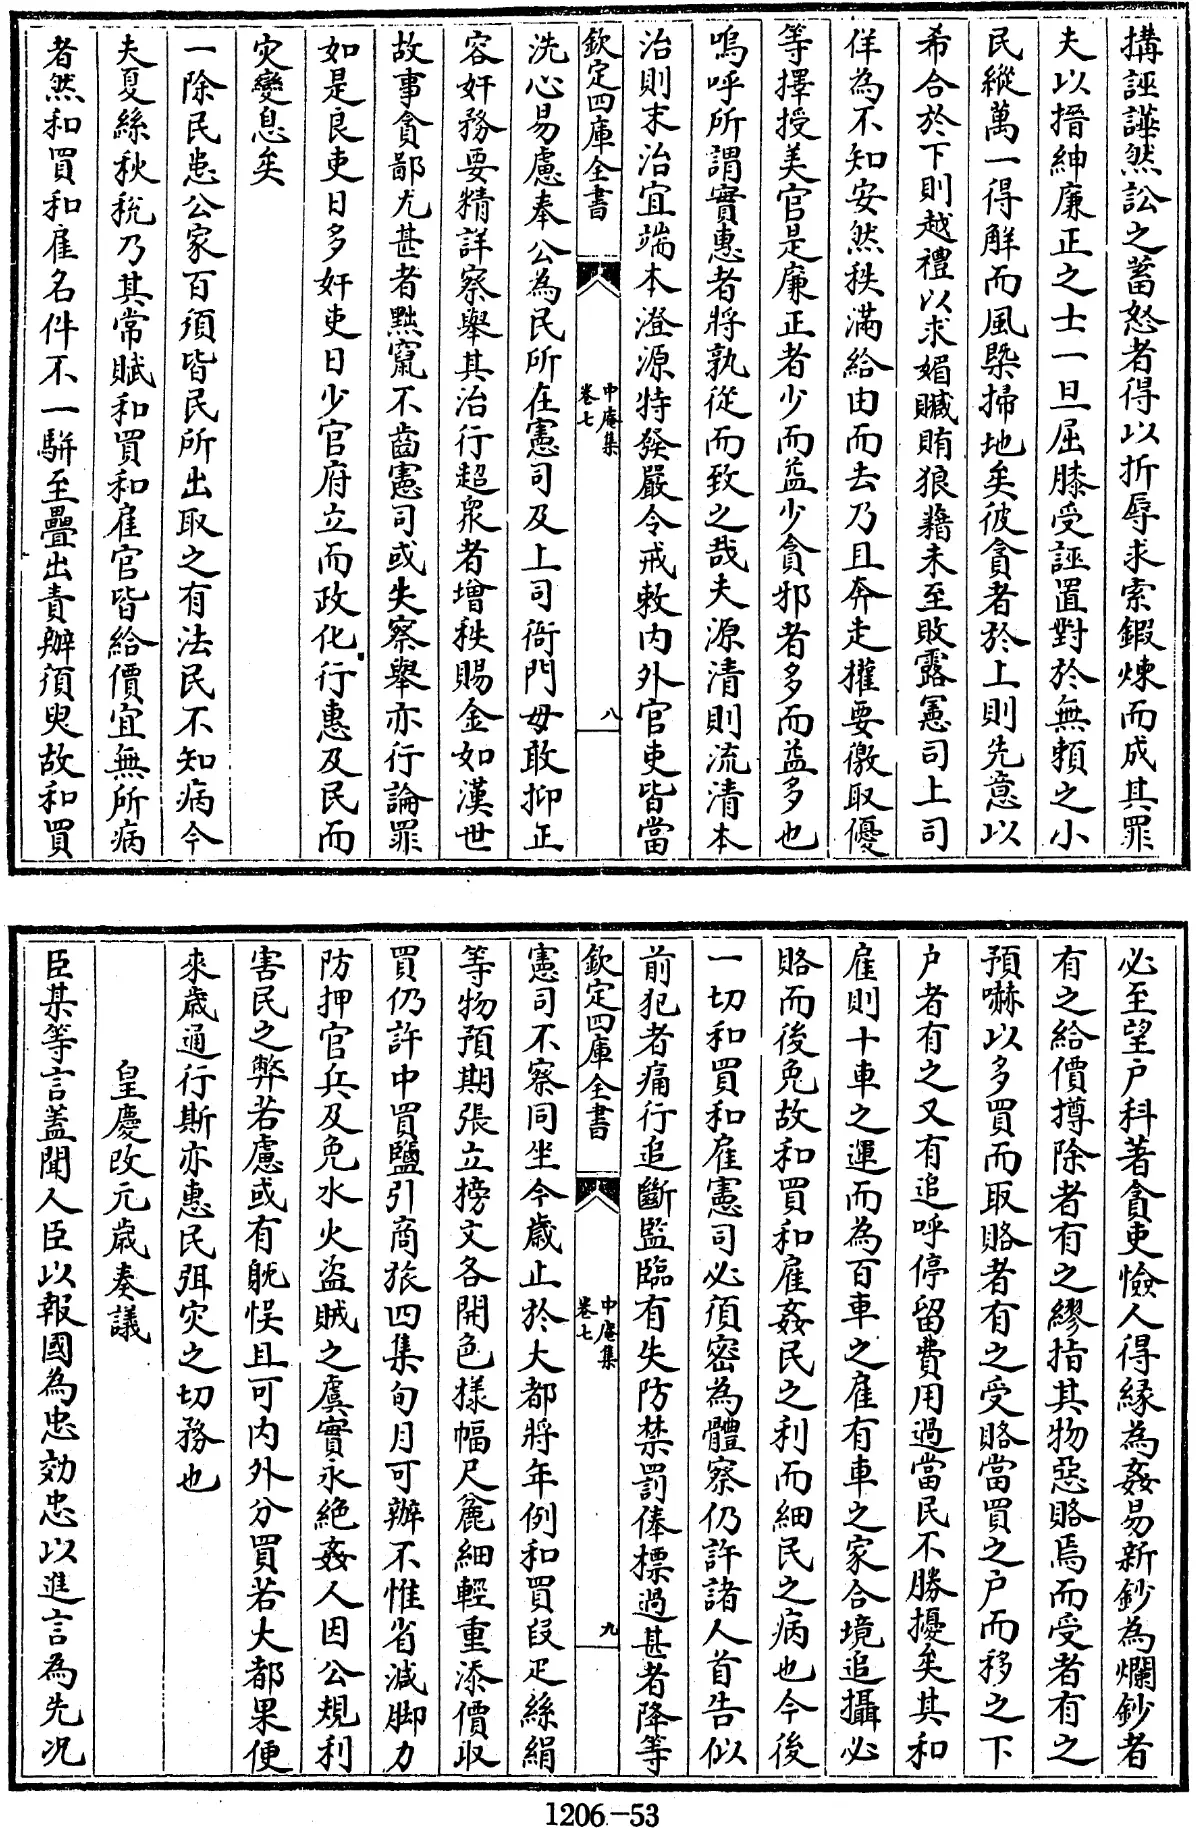 搆誣譁然訟之蓄怒者得以折辱求索鍜煉而成其罪
夫以搢紳廉正之士一旦屈膝受誣置對於無賴之小
民縱萬一得解而風槩掃地矣彼貪者於上則先意以
希合於下則越禮以求媚贓賄狼籍未至敗露憲司上司
佯為不知安然秩滿給由而去乃且奔走權要徼取優
等擇授美官是廉正者少而益少貪邪者多而益多也
嗚呼所謂實惠者將孰從而致之哉夫源清則流清本
治則末治宜端本澄源特發嚴令戒敕内外官吏皆當
欽定四庫全書
中庵集
卷七
八
洗心易慮奉公為民所在憲司及上司衙門毋敢抑正
容奸務要精詳察舉其治行超衆者增秩賜金如漢世
故事貪鄙尤甚者黜竄不齒憲司或失察舉亦行論罪
如是良吏日多奸吏日少官府立而政化行惠及民而
灾變息矣
一除民患公家百湏皆民所出取之有法民不知病今
夫夏絲秋稅乃其常賦和買和雇官皆給價宜無所病
者然和買和雇名件不一駢至疊出責辦湏臾故和買
必至望户科著貪吏憸人得緣為姦易新鈔為爛鈔者
有之給價撙除者有之繆指其物惡賂焉而受者有之
預嚇以多買而取賂者有之受賂當買之户而移之下
户者有之又有追呼停留費用過當民不勝擾矣其和
雇則十車之運而為百車之雇有車之家合境追攝必
賂而後免故和買和雇姦民之利而細民之病也今後
一切和買和雇憲司必湏密為體察仍許諸人首告似
前犯者痛行追斷監臨有失防禁罰俸標過甚者降等
欽定四庫全書
中庵集
卷七
九
憲司不察同坐今歲止於大都將年例和買叚疋絲絹
等物預期張立榜文各開色樣幅尺麄細輕重添價收
買仍許中買鹽引商旅四集旬月可辦不惟省減脚力
防押官兵及免水火盜賊之虞實永絶姦人因公規利
害民之弊若慮或有躭悮且可内外分買若大都果便
來歲通行斯亦惠民弭灾之切務也
皇慶改元歲奏議
臣某等言蓋聞人臣以報國為忠効忠以進言為先况
1206-53